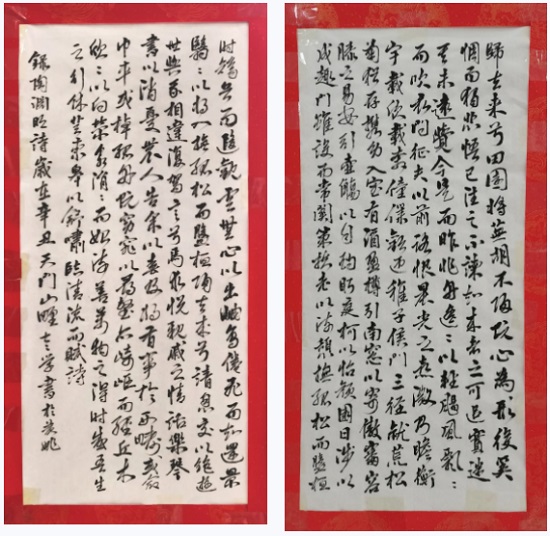 歸去來兮田園將蕪胡不歸既心為形役奚
惆而獨悲悟已往之不諫知來者之可追實迷
其未遠覺今是而昨非舟遙遙以輕颺風飄飄
而吹衣問征夫以前路恨晨光之熹微乃瞻衡
宇載欣載奔僮僕歡迎稚子侯門三徑就荒松
菊猶存攜幼入室有酒盈樽引南窓以寄傲審容
膝之易安引壺觴以自酌眄庭柯以怡顏園日涉以
成趣門雖設而常關策扶老以流憩撫孤松而盤桓
時矯首而遐觀雲無心以出岫鳥倦飛而知還景
翳翳以將入撫孤松而盤桓歸去來兮請息交以絕遊
世與我相違復駕言兮焉求悅親戚之情話樂琴
書以消憂農人告余以春及將有事於西疇或命
巾車或棹孤舟既窈窕以尋壑亦崎嶇而經丘木
欣欣以向榮泉涓涓而始流善萬物之得時感吾生
之行休登東皋以舒嘯臨清流而賦詩
錄陶淵明詩歲在辛丑天門山學書於